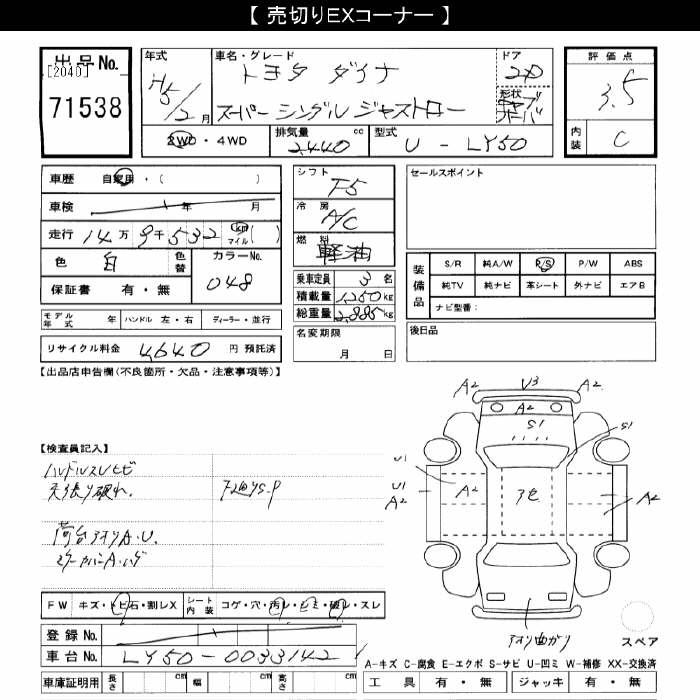 【 売切りEXコーナー 】
出品No.
[2040]
71538
年式
H5/2月
車名・グレード
トヨタ ダイナ
スーパー シングル ジャストロー
ドア
2D
形状
評価点
3.5
内装
C
2WD・4WD
排気量
2440cc
型式
U - LY50
車歴 自家用・( )
車検 年 月
走行 14万9千532 km マイル ( )
色 白 色替
カラーNo.
048
保証書 有・無
モデル年式 年 ハンドル 左・右 ディーラー・並行
リサイクル料金 4,640 円 預託済
シフト
F5
冷房
A/C
燃料
軽油
乗車定員 3名
積載量 1,250kg
総重量 2,885kg
名変期限
月 日
セールスポイント
装備品
S/R 純A/W P/S P/W ABS
純TV 純ナビ 革シート 外ナビ エアB
ナビ型番:
後日品
【出品店申告欄(不良箇所・欠品・注意事項等)】
【検査員記入】
天張り破れ.
荷台アオリA.U.
FW キズ・トビ石・割レX
シート内装 コゲ・穴・汚レ・シミ・破レ・スレ
登録No.
車台No. LY50-0033142
車庫証明用 長さ cm 幅 cm 高さ cm
A2 V3 A2
A2
S1
S1
U1
U1
A2
A2
A2
アオリ曲がり
スペア
A-キズ C-腐食 E-エクボ S-サビ U-凹ミ W-補修 XX-交換済
工具 有・無 ジャッキ 有・無